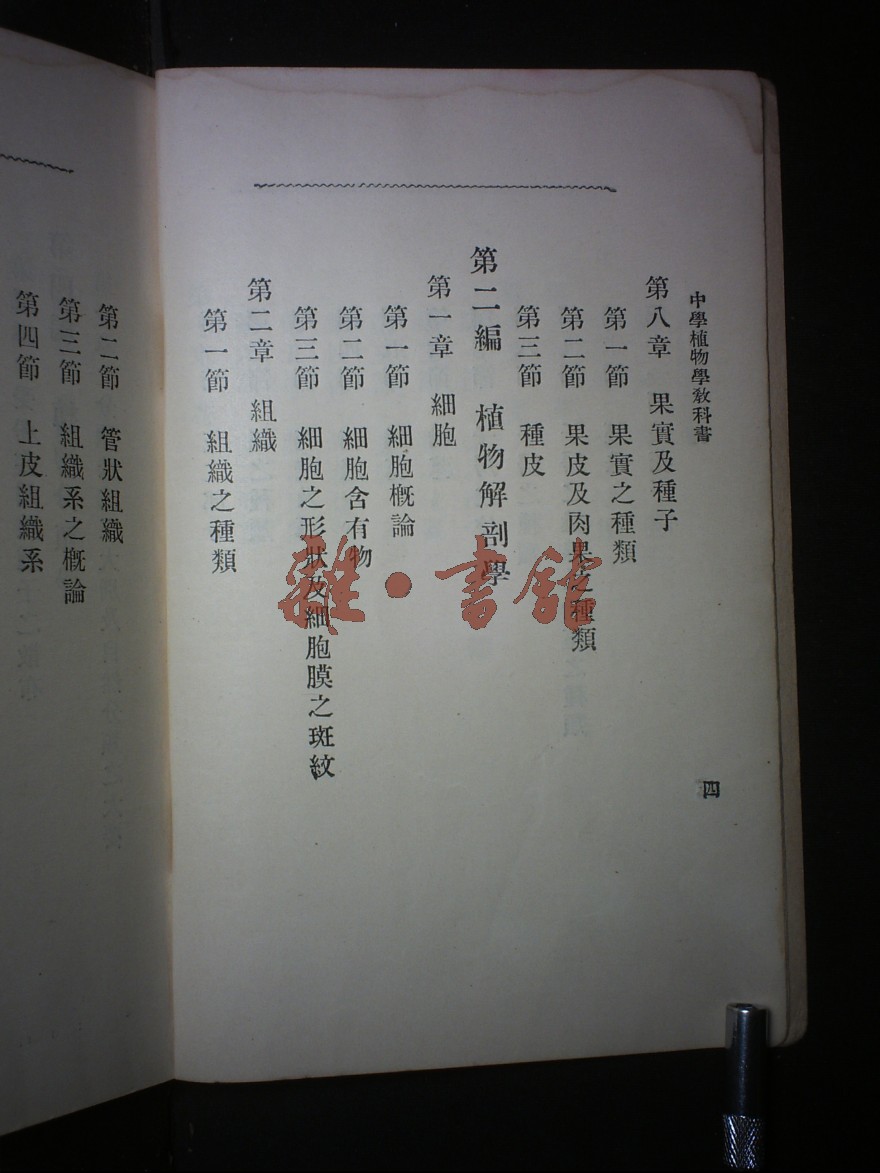 中學植物學敎科書
四
第八章 果實及種子
第一節 果實之種類
第二節 果皮及肉果之種類
第三節 種皮
第二編 植物解剖學
第一章 細胞
第一節 細胞槪論
第二節 細胞含有物
第三節 細胞之形狀及細胞膜之斑紋
第二章 組織
第一節 組織之種類
第二節 管狀組織
第三節 組織系之概論
第四節 上皮組織系
雜·書館